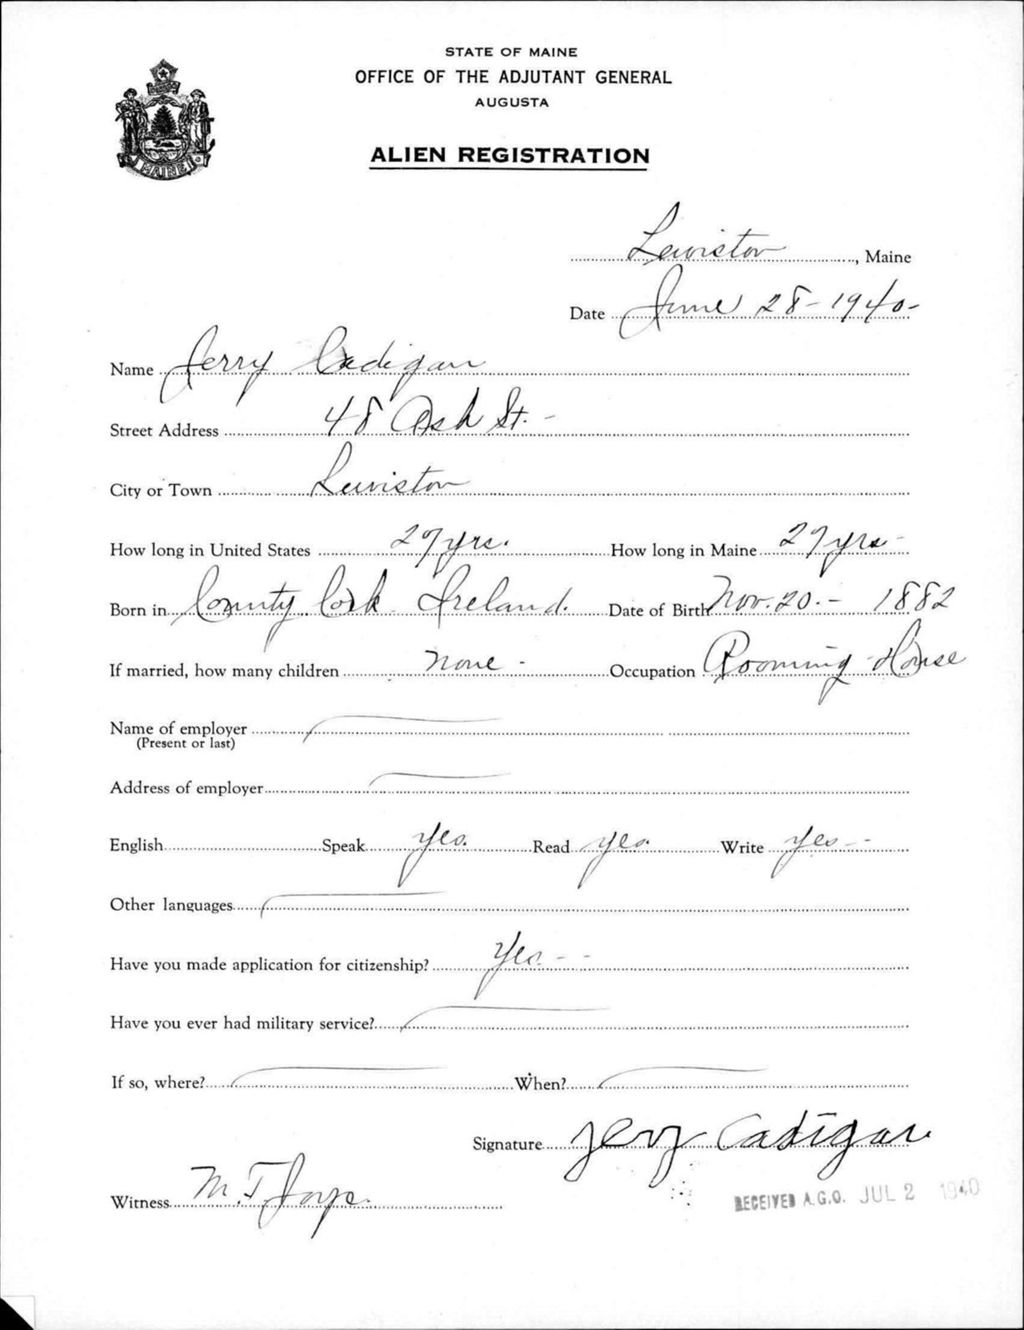 STATE OF MAINE
OFFICE OF THE ADJUTANT GENERAL
AUGUSTA
ALIEN REGISTRATION
MAINE
Lewiston, Maine
Date June 28-1940-
Name Jerry Cadigan
Street Address 48 Ash St. -
City or Town Lewiston
How long in United States 27 yrs. How long in Maine 27 yrs -
Born in County Cork Ireland. Date of Birth Nov. 20. - 1882
If married, how many children none - Occupation Rooming House
Name of employer
(Present or last)
Address of employer
English Speak yes. Read yes. Write yes - -
Other languages
Have you made application for citizenship? Yes - -
Have you ever had military service?
If so, where? When?
Signature Jerry Cadigan
Witness M. T.
RECEIVED A.G.O. JUL 2 1940